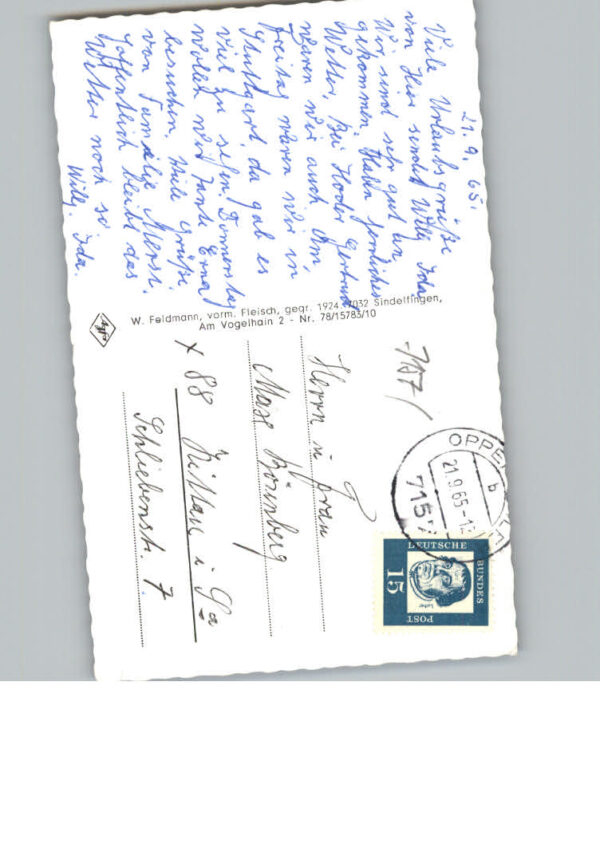 21.9.65.
Viele Urlaubsgrüße
von Hier sendet Willy Ida
Wir sind sehr gut her
gekommen. Haben herrliches
Wetter. Bei Gertrud
waren wir auch schon,
Freitag waren wir in,
Stuttgart, da gab es
viel zu sehn. Donnerstag
wollen wir Tante Erna
besuchen. Viele Grüße
von Familie
Hoffentlich bleibt das
Wetter noch so
Willy. Ida.
W. Feldmann, vorm. Fleisch, gegr. 1924, 7032 Sindelfingen,
Am Vogelhain 2 - Nr. 78/15783/10
Agfa
Herrn u Frau
Max
x 88 Zittau i. Sa
Schliebenstr. 7.
OPPE
b
21.9.65-1
7157
DEUTSCHE
BUNDES
POST
15
Luther